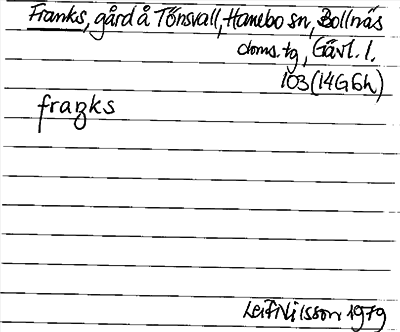 Franks, gård å Tönsvall, Hanebo sn, Bollnäs
doms. tg, Gävl. l.
103 (14G6h)
fraŋks
Leif Nilsson 1979